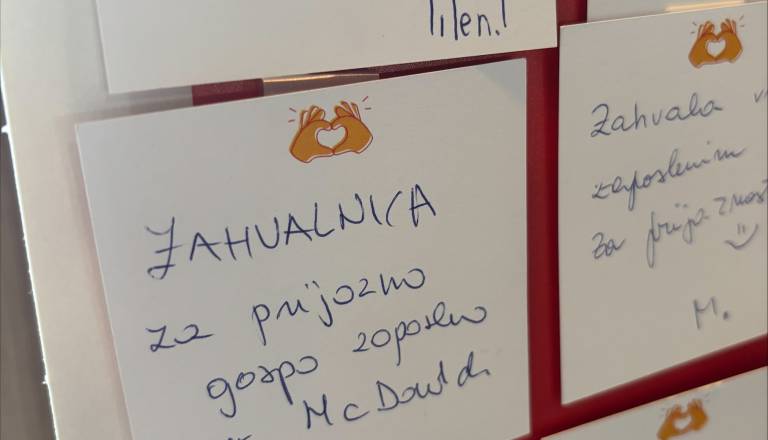 Tilen!
ZAHVALNICA
za prijazno
gospo zaposleno
McDonald
Zahvala
zaposlenim
za prijaznost
M.